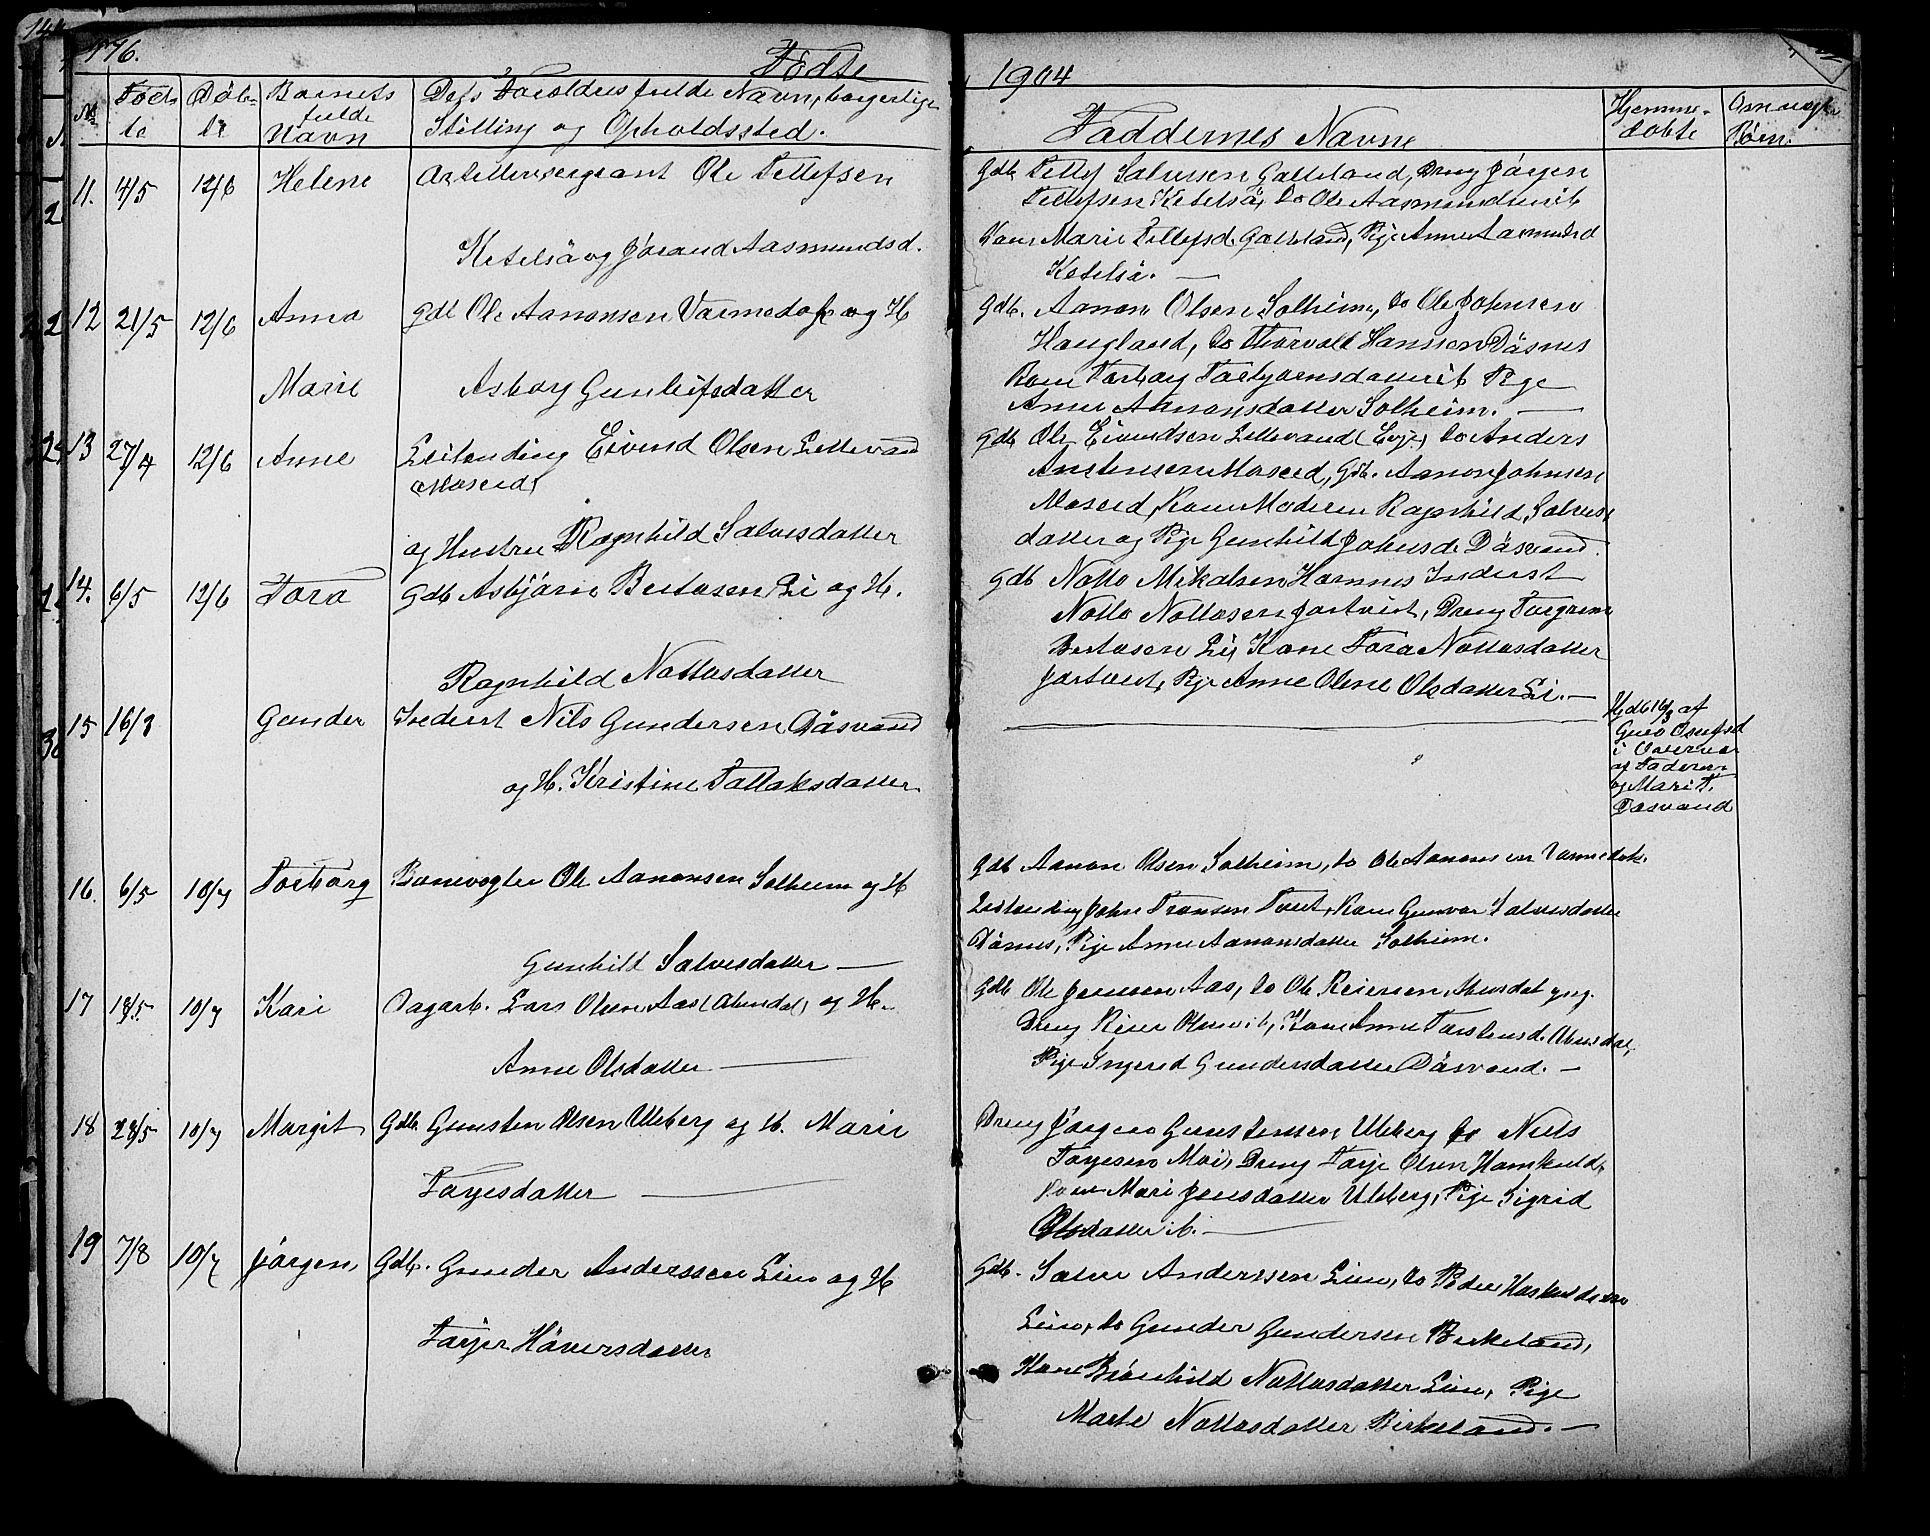 176.
Fødte
1904
№ Fødte Døbte Barnets fulde Navn
Dets Forældres fulde Navn, borgerlige Stilling og Opholdssted.
Faddernes Navne
Hjemmedøbte
Børn.
11. 4/5 12/6 Helene
Artillerisergeant Ole Tellefsen
Ketelså og Jórand Aasmundsd.
Gdb. Tellef Salvesen Galteland, Dreng Jörgen
Tellefsen Ketelså, Do Ole Aasmunds ib
Kone Marie Tellefsd. Galteland, Pige Anne Aasmundsd
Ketelså.
12 21/5 12/6 Anna
Marie
Gdb Ole Aanonsen Varmedok og H
Asborg Gunleifsdatter
Gdb. Aanon Olsen Solheim, Do Ole Johnsen
Haugland, Do Thorvald Hansen Dåsnes
Kone Torborg Torbjørnsdatter ib Pige
Anne Aanonsdatter Solheim.
13 27/4 12/6 Anne
Leilending Eivind Olsen Lillevand
(Moseid)
og Hustru Ragnhild Salvesdatter
Gdb Ole Eivindsen Lillevand (Evje) Do Anders
Anstensen Moseid, Gdb. Aanon Johnsen
Moseid, Kone Moderen Ragnhild Salves
datter og Pige Gunhild Johnsd. Dåsvand.
14. 6/5 12/6 Tora
Gdb Asbjörn Bertosen Li og H.
Ragnhild Nottosdatter
Gdb Notto Mikalsen Hornnes Inderst
Notto Nottosen Jortveit, Dreng Torgrim
Bertosen Li, Kone Tora Nottosdatter
Jortveit, Pige Anne Oline Olsdatter Li.
15 16/3
Gunder
Inderst Nils Gundersen Dåsvand
og H. Kristine Tallaksdatter
Hjdb 16/3 af
i
af Faderen
og Mari T.
Dåsvand
16. 6/5 10/7 Torborg
Banevogter Ole Aanonsen Solheim og H
Gunhild Salvesdatter
Gdb Aanon Olsen Solheim, Do Ole Aanonsen Varmedok.
Leilending John Tronsen Tveit, Kone Gunvor Salvesdatter
Dåsnes, Pige Anne Aanonsdatter Solheim.
17 18/5 10/7 Kari
Dagarb. Lars Olsen Aas (Abusdal) og H.
Anne Olsdatter
Gdb Ole Jensen Aas, Do Ole Reiersen Abusdal yng.
Dreng Reier Olsen ib, Kone Anne Torstensd. Abusdal,
Pige Ingerid Gundersdatter Dåsvand.
18 28/5 10/7 Margit
Gdb. Gunsten Olsen Uleberg og H. Marie
Torjesdatter
Dreng Jörgen Gunstensen Uleberg Do Niels
Torjesen Moi, Dreng Torje Olsen
Kone Mari Jensdatter Uleberg, Pige Sigrid
Olsdatter ib.
19 7/8 10/7 Jörgen
Gdb. Gunder Anderssen Lien og H
Torjer Håversdatter
Gdb. Salve Anderssen Lien, Do Peder Haskuldsen
Lien, Do Gunder Gundersen Birkeland,
Kone Brönhild Nottosdatter Lien, Pige
Marte Nottosdatter Birkeland.